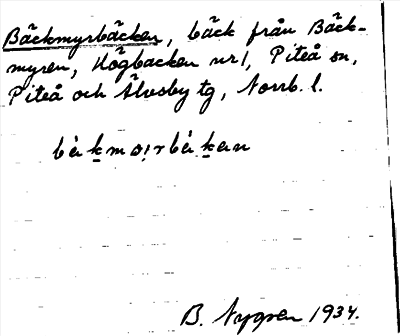 Bäckmyrbäcken, bäck från Bäck-
myren, Högbacken nr 1, Piteå sn,
Piteå och Älvsby tg, Norrb. l.
B. Nygren 1934.